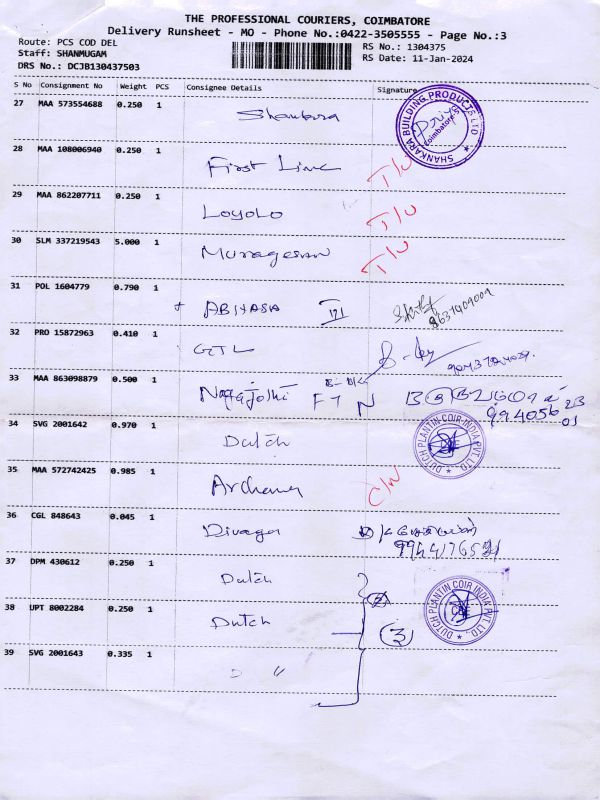 THE PROFESSIONAL COURIERS, COIMBATORE
Delivery Runsheet - MO - Phone No.:0422-3505555 - Page No.:3
Route: PCS COD DEL
Staff: SHANMUGAM
DRS No.: DCJB130437503
RS No.: 1304375
RS Date: 11-Jan-2024
S No Consignment No Weight PCS Consignee Details Signature
27 MAA 573554688 0.250 1 Shankara
SHANKARA BUILDING PRODUCTS LTD
Coimbatore
28 MAA 108006940 0.250 1 First Line T/U
29 MAA 862207711 0.250 1 Loyolo T/U
30 SLM 337219543 5.000 1 Muragesan T/U
31 POL 1604779 0.790 1 ABIYASA 8637409009
32 PRO 15872963 0.410 1 GTL
33 MAA 863098879 0.500 1
34 SVG 2001642 0.970 1 Dutch
DUTCH PLANTIN COIR INDIA PVT. LTD.
35 MAA 572742425 0.985 1 Archana
36 CGL 848643 0.045 1 Divagar
37 DPM 430612 0.250 1 Dutch
38 UPT 8002284 0.250 1 Dutch 3
DUTCH PLANTIN COIR INDIA PVT. LTD.
39 SVG 2001643 0.335 1 〃